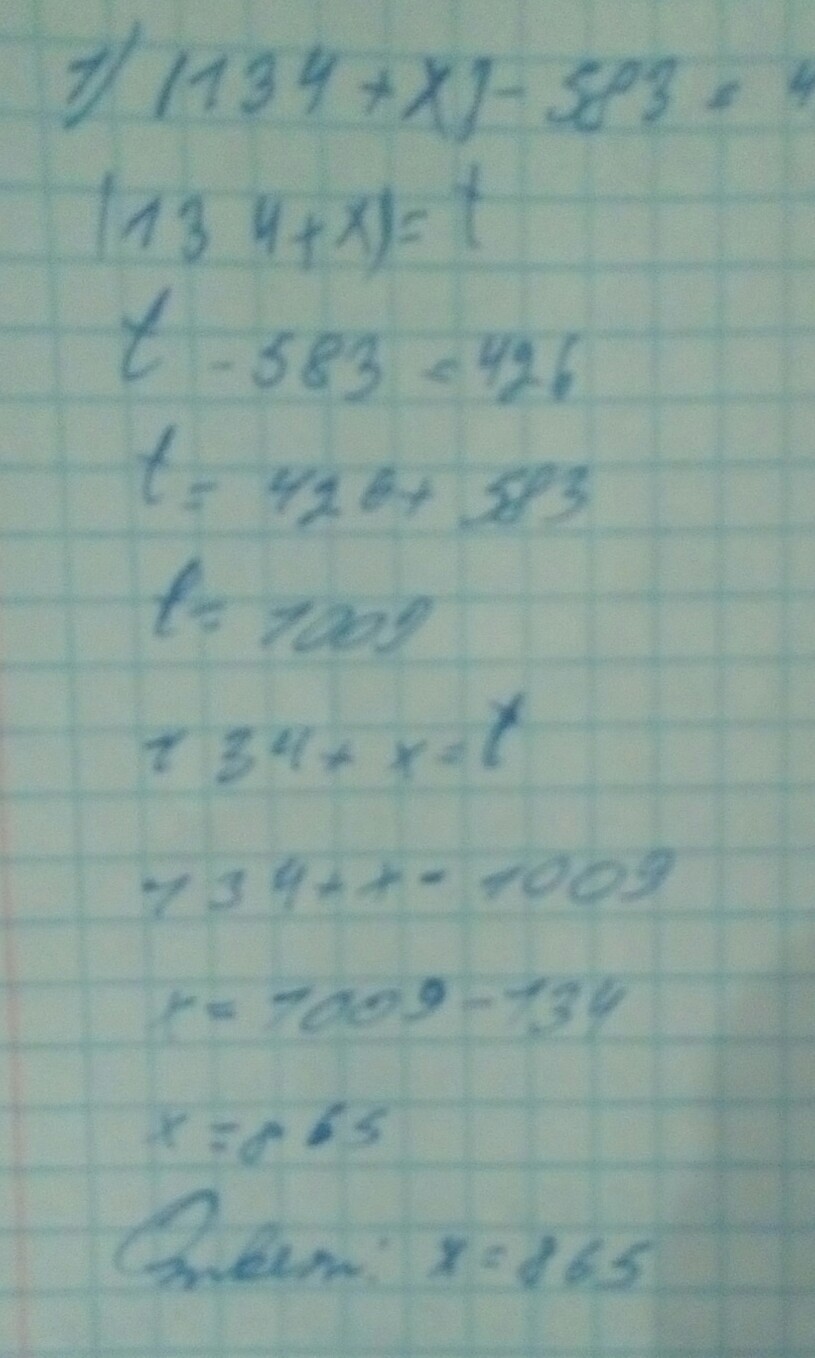 1) (134 + x) - 583 = 4
(134 + x) = t
t - 583 = 426
t = 426 + 583
t = 1009
134 + x = t
134 + x = 1009
x = 1009 - 134
x = 865
Ответ: x = 865